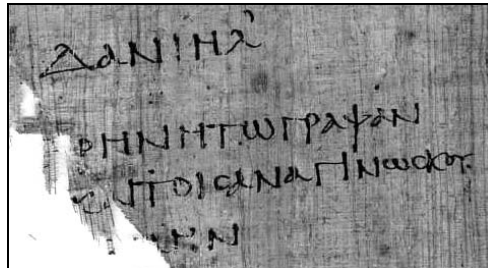 ΔΑΝΙΗΛ
ΡΗΝΗ ΤΩ ΓΡΑΨΑΝ
ΤΟΙϹ ΑΝΑΓΙΝΩϹΚΟΥ